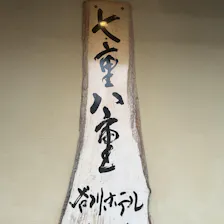 七重八重
谷川ホテル